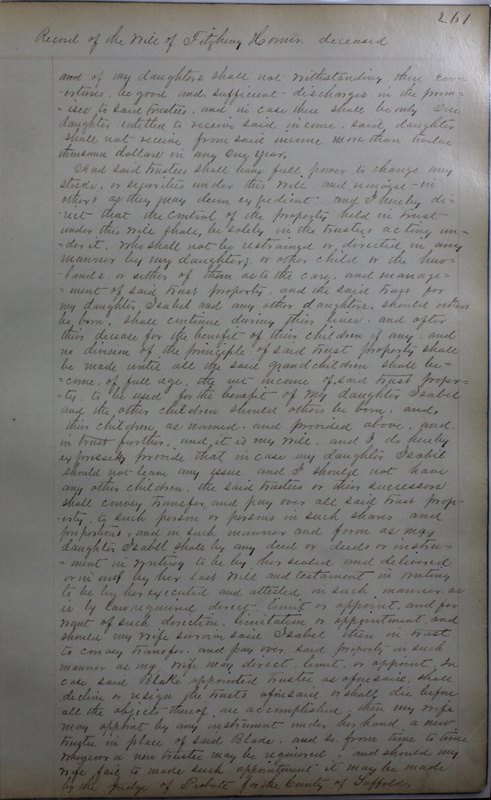 261
Record of the Will of Fitzhenry Homer. deceased
and of my daughters shall not withstanding their cov-
-ertures. be good and sufficient discharges in the prem-
-ises to said trustees. and in case there shall be only one
daughter entitled to receive said income. said daughter
shall not receive from said income more than twelve
thousand dollars in any one year.
And said trustees shall have full power to change any
stocks, or securities under this will. and reinvest in
others as they may deem expedient. and I hereby di-
-rect that the control of the property held in trust
under this will shall, be solely in the trustees acting un-
-der it. who shall not be restrained or directed in any
manner by my daughters or other child or the hus-
-bands or either of them as to the care, and manage-
-ment of said trust property, and the said trust for
my daughter Isabel and any other daughters should others
be born, shall continue during their lives. and after
their decease for the benefit of their children if any. and
no division of the principle of said trust property shall
be made until all the said grandchildren shall be-
-come, of full age, the net income of said trust proper-
-ty. to be used for the benefit of my daughter Isabel
and the other children should others be born. and,
their children as named. and provided above. and.
in trust further. and, it is my will. and I do hereby
expressly provide that in case my daughter Isabel
should not leave any issue and I should not have
any other children. the said trustees or their successors
shall convey transfer, and pay over all said trust prop-
-erty, to such person or persons in such shares and
proportions, and in such manner and form as my
daughter Isabel shall by any deed or deeds or instru-
-ment in writing to be by her sealed and delivered
or in by her last will and testament in writing
to be by her executed and attested in such manner as
is by law required direct limit or appoint. and for
want of such direction. limitation or appointment. and
should my wife survive said Isabel then in trust
to convey transfer. and pay over. said property in such
manner as my wife may direct. limit. or appoint. In
case said Blake appointed trustee as aforesaid. shall
decline or resign the trusts aforesaid or shall die before
all the objects thereof. are accomplished, then my wife
may appoint by any instrument under her hand, a new
trustee in place of said Blake. and so from time to time
whenever a new trustee may be required. and should my
wife fail to made such appointment it may be made
by the Judge of Probate for the County of Suffolk.